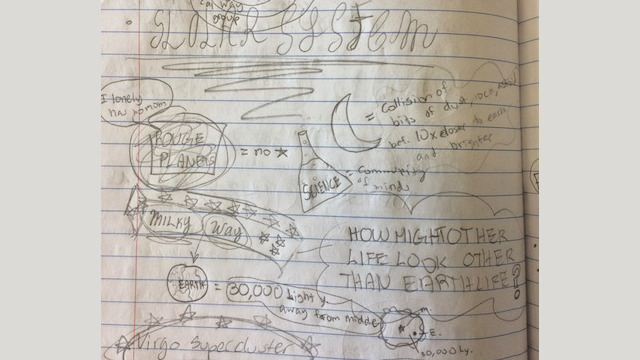 WAY
GROUP
SLOLAR SYSTEM
I lonely
no mom
ROUGE
PLANETS
= no
SCIENCE
= Community
of minds
= Collision of
bits of dust, rock,
bef. 10x closer to earth
and brighter
MILKY WAY
HOW MIGHT OTHER
LIFE LOOK OTHER
THAN EARTH LIFE?
EARTH = 30,000 light y
away from middle
E.
30,000 ly.
Virgo supercluster